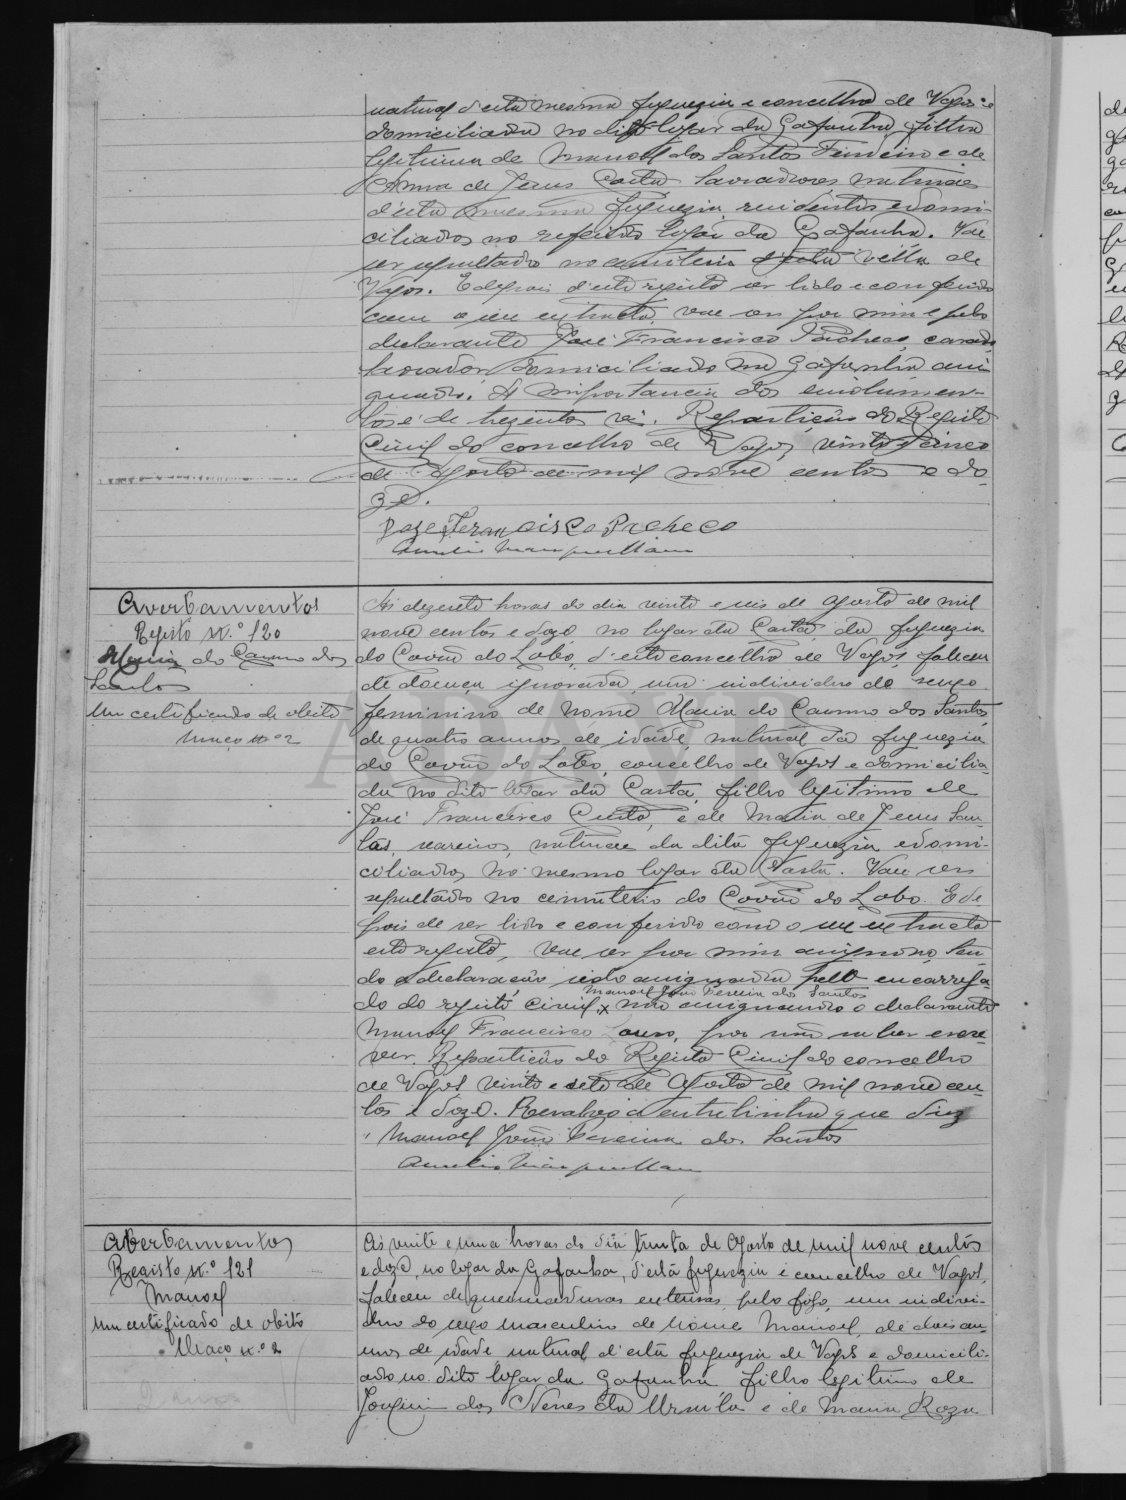 natural d'esta mesma freguezia e concelho de Vagos e
domiciliada no dito lugar da Gafanha, filha
legitima de Manoel dos Santos Ferreiro e de
Anna de Jesus Costa, lavradores, naturaes
d'esta mesma freguezia, residentes e domi-
ciliados no referido lugar da Gafanha. Vae
ser sepultado no cemiterio d'esta villa de
Vagos. E depois d'este registo ser lido e conferido
com o seu extracto, vae ser por mim e pelo
declarante José Francisco Pacheco, casado,
lavrador, domiciliado na Gafanha assi-
gnado. A importancia dos emolumen-
tos é de trezentos reis. Repartição do Registo
Civil do concelho de Vagos, vinte e cinco
de Agosto de mil nove centos e do-
ze.
Joze Francisco Pacheco
Averbamentos
Registo N.º 120
Maria do Carmo dos
Santos
Um certificado de obito
Maço nº 2
As dezesete horas do dia vinte e seis de Agosto de mil
nove centos e doze no lugar da Costa, da freguezia
do Covão do Lobo, d'este concelho de Vagos, faleceu
de doença ignorada, um individuo do sexo
feminino de nome Maria do Carmo dos Santos,
de quatro annos de idade, natural da freguezia
do Covão do Lobo, concelho de Vagos e domicilia-
da no dito lugar da Costa, filho legitimo de
José Francisco Couto, e de Maria de Jesus San-
tos, naturaes da dita freguezia e domi-
ciliados no mesmo lugar da Costa. Vae ser
sepultado no cemiterio do Covão do Lobo. E de-
pois de ser lido e conferido com o seu extracto
este registo, vae ser por mim assignado, sen-
do a declaração sido assignada pelo encarrega-
Manoel João Ferreira dos Santos
do do registo civil, x não assignando o declarante
Manoel Francisco, por não saber escre-
ver. Repartição do Registo Civil do concelho
de Vagos vinte e sete de Agosto de mil nove cen-
tos e doze. Resalvo a entrelinha que diz
Manoel João Ferreira dos Santos
Averbamentos
Registo N.º 121
Manoel
Um certificado de obito
Maço n.º 2
Ás vinte e uma horas do dia trinta de Agosto de mil nove centos
e doze, no lugar da Gafanha, d'esta freguezia e concelho de Vagos,
faleceu de queimaduras extensas, pelo fogo, um indivi-
duo do sexo masculino de nome Manoel, de dois an-
nos de idade natural d'esta freguezia de Vagos e domicili-
ado no dito lugar da Gafanha filho legitimo de
Joaquim dos Neves da Ursula e de Maria Roza